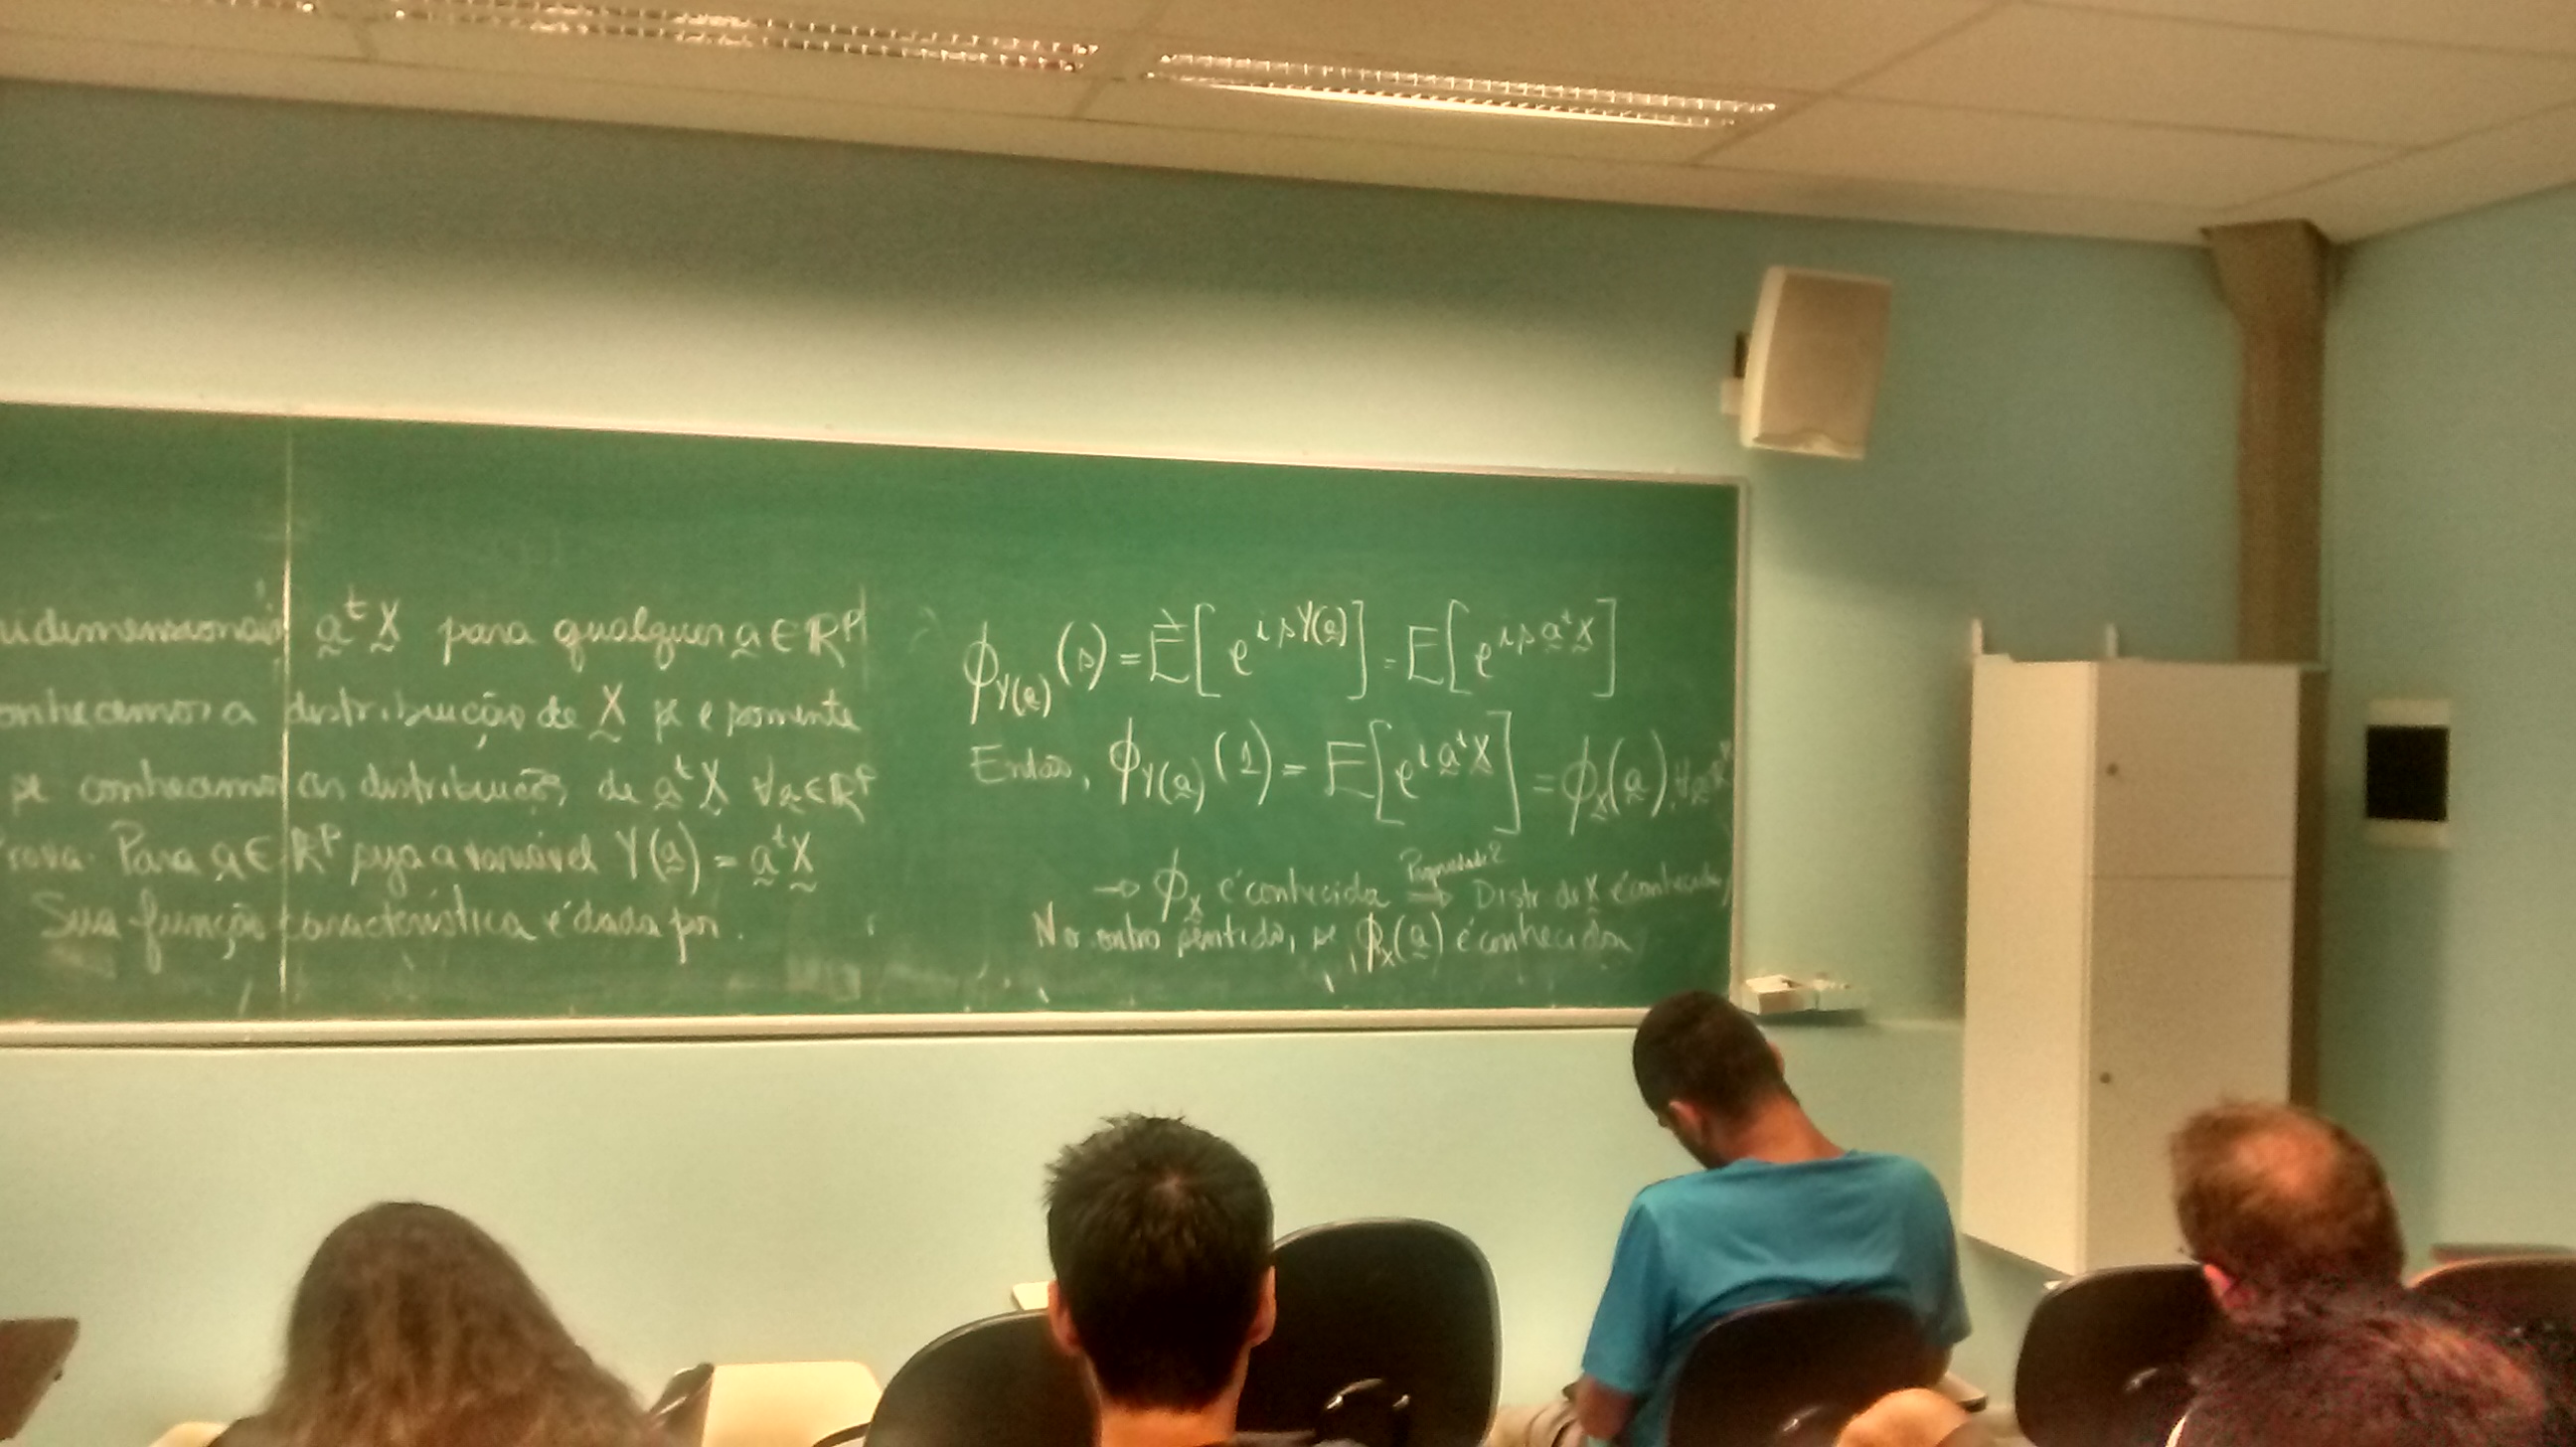 unidimensionais a^t X para qualquer a ∈ R^p
conhecamos a distribuição de X se e somente
se conhecamos as distribuições de a^t X ∀ a ∈ R^p
Prova. Para a ∈ R^p seja a variável Y(a) = a^t X
Sua função característica é dada por.
ϕ_{Y(a)}(s) = E[e^{i s Y(a)}] = E[e^{i s a^t X}]
Entao, ϕ_{Y(a)}(1) = E[e^{i a^t X}] = ϕ_X(a), ∀
→ ϕ_X é conhecida ⇒ Propriedade 2 Distr. de X é conhecida
No outro sentido, se ϕ_X(a) é conhecida